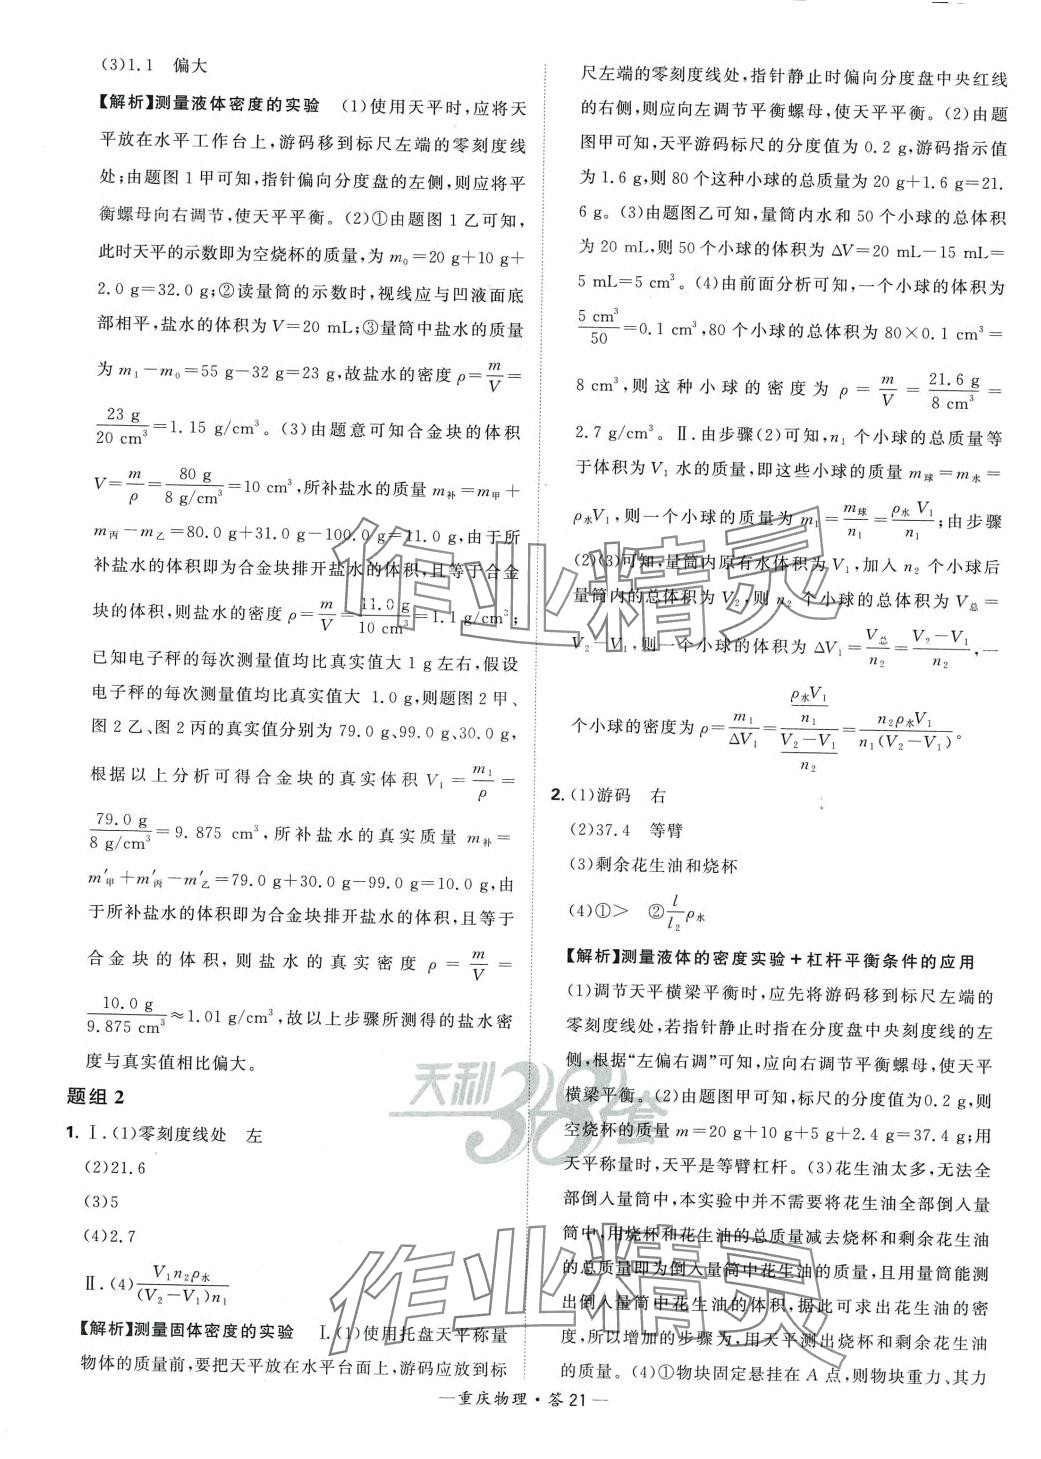 (3)1.1 偏大
【解析】测量液体密度的实验 (1)使用天平时,应将天
平放在水平工作台上,游码移到标尺左端的零刻度线
处;由题图 1 甲可知,指针偏向分度盘的左侧,则应将平
衡螺母向右调节,使天平平衡。(2)①由题图 1 乙可知,
此时天平的示数即为空烧杯的质量,为 m₀=20 g+10 g+
2.0 g=32.0 g;②读量筒的示数时,视线应与凹液面底
部相平,盐水的体积为 V=20 mL;③量筒中盐水的质量
为 m₁-m₀=55 g-32 g=23 g,故盐水的密度 ρ=m/V=
23 g/20 cm³=1.15 g/cm³。(3)由题意可知合金块的体积
V=m/ρ=80 g/8 g/cm³=10 cm³,所补盐水的质量 m补=m甲+
m丙-m乙=80.0 g+31.0 g-100.0 g=11.0 g,由于所
补盐水的体积即为合金块排开盐水的体积,且等于合金
块的体积,则盐水的密度 ρ=m/V=11.0 g/10 cm³=1.1 g/cm³;
已知电子秤的每次测量值均比真实值大 1 g左右,假设
电子秤的每次测量值均比真实值大 1.0 g,则题图 2 甲、
图 2 乙、图 2 丙的真实值分别为 79.0 g、99.0 g、30.0 g,
根据以上分析可得合金块的真实体积 V₁=m₁/ρ=
79.0 g/8 g/cm³=9.875 cm³,所补盐水的真实质量 m补=
m′甲+m′丙-m′乙=79.0 g+30.0 g-99.0 g=10.0 g,由
于所补盐水的体积即为合金块排开盐水的体积,且等于
合金块的体积,则盐水的真实密度 ρ=m/V=
10.0 g/9.875 cm³≈1.01 g/cm³,故以上步骤所测得的盐水密
度与真实值相比偏大。
题组 2
1. Ⅰ.(1)零刻度线处 左
(2)21.6
(3)5
(4)2.7
Ⅱ.(4)V₁n₂ρ水/(V₂-V₁)n₁
【解析】测量固体密度的实验 Ⅰ.(1)使用托盘天平称量
物体的质量前,要把天平放在水平台面上,游码应放到标
尺左端的零刻度线处,指针静止时偏向分度盘中央红线
的右侧,则应向左调节平衡螺母,使天平平衡。(2)由题
图甲可知,天平游码标尺的分度值为 0.2 g,游码指示值
为 1.6 g,则 80 个这种小球的总质量为 20 g+1.6 g=21.
6 g。(3)由题图乙可知,量筒内水和 50 个小球的总体积
为 20 mL,则 50 个小球的体积为 ΔV=20 mL-15 mL=
5 mL=5 cm³。(4)由前面分析可知,一个小球的体积为
5 cm³/50=0.1 cm³,80 个小球的总体积为 80×0.1 cm³=
8 cm³,则这种小球的密度为 ρ=m/V=21.6 g/8 cm³=
2.7 g/cm³。Ⅱ.由步骤(2)可知,n₁ 个小球的总质量等
于体积为 V₁ 水的质量,即这些小球的质量 m球=m水=
ρ水V₁,则一个小球的质量为 m₁=m球/n₁=ρ水V₁/n₁;由步骤
(2)(3)可知,量筒内原有水体积为 V₁,加入 n₂ 个小球后
量筒内的总体积为 V₂,则 n₂ 个小球的总体积为 V总=
V₂-V₁,则一个小球的体积为 ΔV₁=V总/n₂=V₂-V₁/n₂,一
个小球的密度为 ρ=m₁/ΔV₁=(ρ水V₁/n₁)/(V₂-V₁/n₂)=n₂ρ水V₁/n₁(V₂-V₁)。
2. (1)游码 右
(2)37.4 等臂
(3)剩余花生油和烧杯
(4)①> ②l/l₂ρ水
【解析】测量液体的密度实验+杠杆平衡条件的应用
(1)调节天平横梁平衡时,应先将游码移到标尺左端的
零刻度线处,若指针静止时指在分度盘中央刻度线的左
侧,根据“左偏右调”可知,应向右调节平衡螺母,使天平
横梁平衡。(2)由题图甲可知,标尺的分度值为0.2 g,则
空烧杯的质量 m=20 g+10 g+5 g+2.4 g=37.4 g;用
天平称量时,天平是等臂杠杆。(3)花生油太多,无法全
部倒入量筒中,本实验中并不需要将花生油全部倒入量
筒中,用烧杯和花生油的总质量减去烧杯和剩余花生油
的总质量即为倒入量筒中花生油的质量,且用量筒能测
出倒入量筒中花生油的体积,据此可求出花生油的密
度,所以增加的步骤为,用天平测出烧杯和剩余花生油
的质量。(4)①物块固定悬挂在 A 点,则物块重力、其力
—重庆物理·答 21—
作业精灵
天利38套
作业精灵